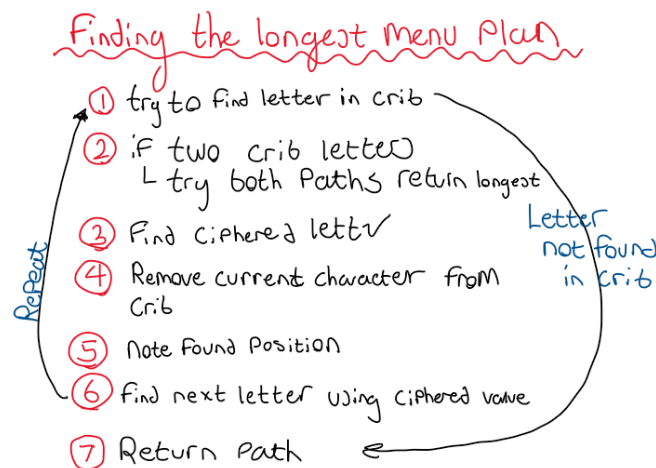 Finding the longest menu plan
① try to find letter in crib
② if two crib letters
└ try both paths return longest
③ Find ciphered letter
④ Remove current character from
crib
⑤ note found position
⑥ find next letter using ciphered value
⑦ Return path
Repeat
Letter
not found
in crib